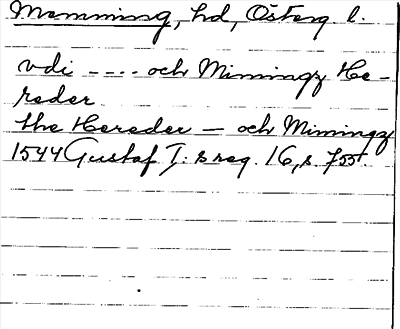 Memming, hd, Österg l.
udi ---- och Mimingz He-
reder
the Hereder — och Mimingz
1544 Gustaf I: s reg. 16, s. 755.